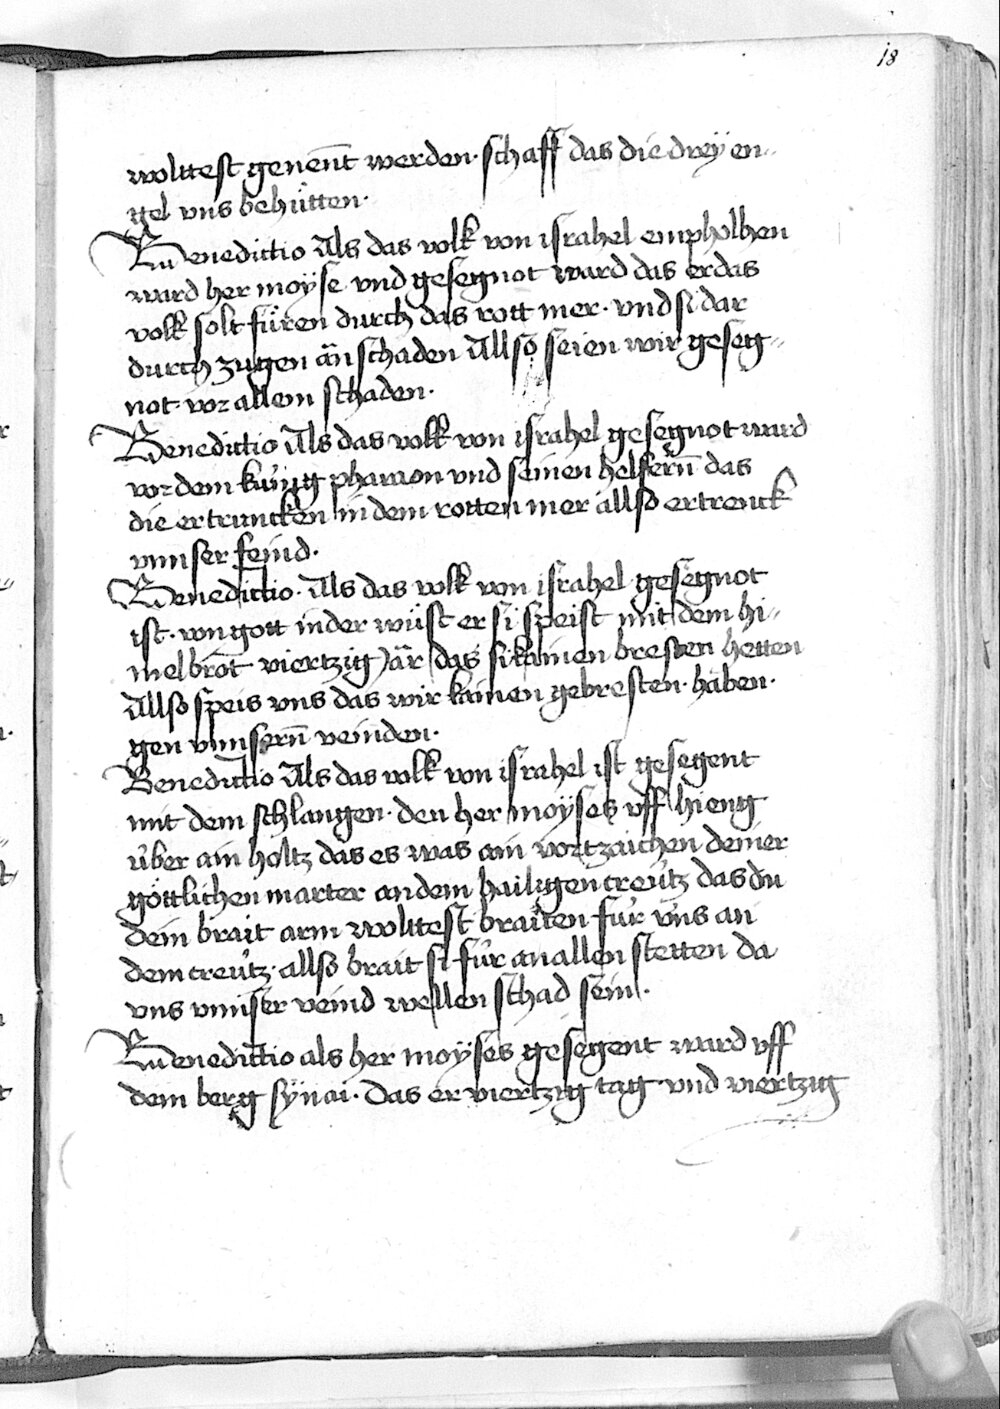 18
wolttest genent̄ werden · schaff das die dreÿ en-
gel vns behütten ·
Benedictio Als das volk von israhel empholhen
ward her moÿse vnd gesegnot ward das er das
volk solt füren durch das rott mer · vnd si dar
durch zugen än schaden Allso seien wir geseg-
not · vor allem schaden ·
Benedictio Als das volk von israhel gesegnot ward
vor dem küngg pharaon vnd seinen helfern̄ das
die ertruncken in dem rotten mer allso ertrenck
vnnser feind ·
Benedictio · Als das volk von israhel gesegnot
ist · von gott in der wüst er si speist mit dem hi-
melbrot viertzig jär das si kainen bresten hetten
Allso speis vns das wir kainen gebresten · haben ·
gen vnnsern̄ veinden ·
Benedictio Als das volk von israhel ist gesegent
mit dem schlangen · den her moÿses vff hieng
über ain holtz das es was ain vortzaichen deiner
göttlichen marter an dem hailigen creütz das du
dein brait arm wolttest braiten für vns an
dem creütz · allso brait si für an allen stetten da
vns vnnser veind wellen schad sein ·
Benedictio als her moÿses gesegent ward vff
dem berg sÿnai · Das er viertzig tag · vnd viertzig